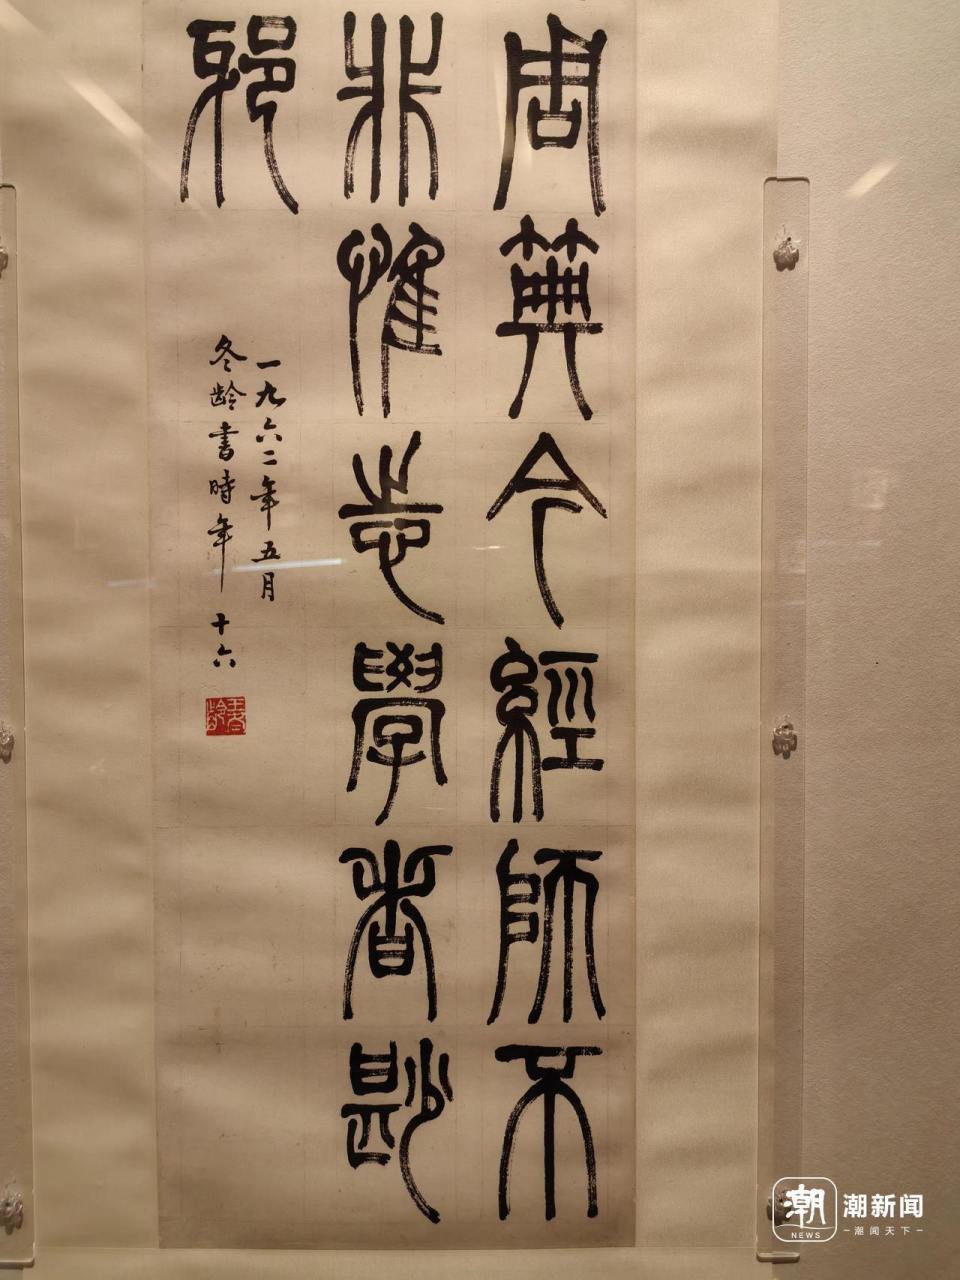 周典今經師不
非惟志學者尟
邪
一九六二年五月
冬齡書時年十六
潮新闻
潮 NEWS
潮闻天下